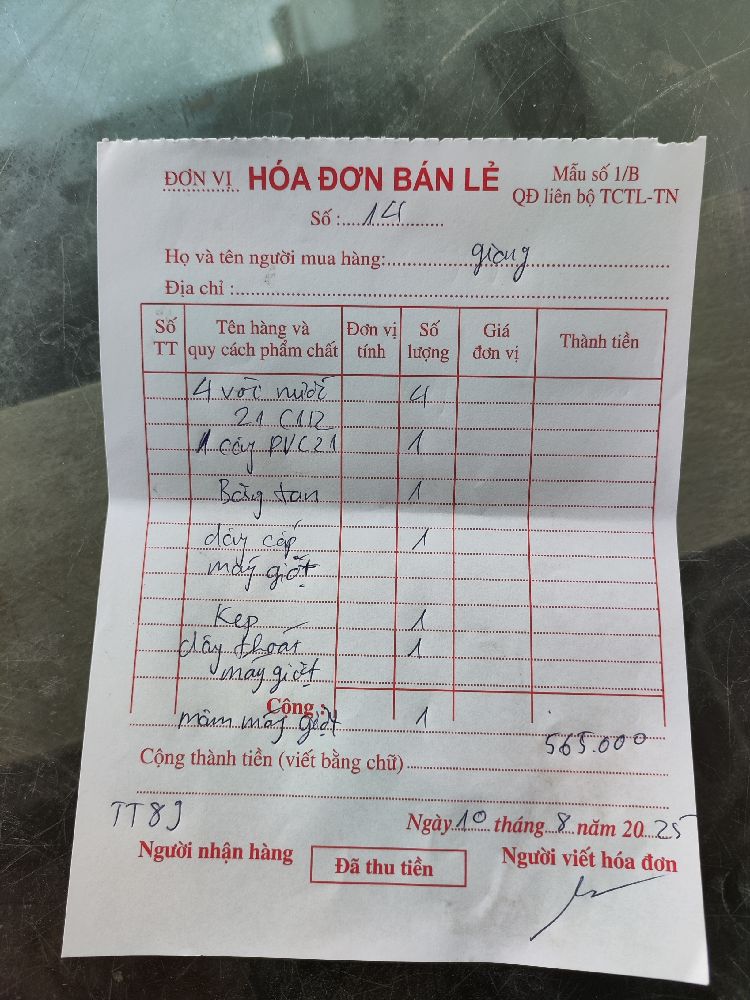 ĐƠN VỊ HÓA ĐƠN BÁN LẺ Mẫu số 1/B
QĐ liên bộ TCTL-TN
Số: 14
Họ và tên người mua hàng: giàng
Địa chỉ :
Số TT Tên hàng và quy cách phẩm chất Đơn vị tính Số lượng Giá đơn vị Thành tiền
4 vòi nước 4
21
1 cây PVC 21 1
Băng tan 1
dây cấp 1
máy giặt
Kẹp 1
dây thoát 1
máy giặt
Cộng :
mâm máy giặt 1
565.000
Cộng thành tiền (viết bằng chữ)
TT89
Ngày 10 tháng 8 năm 2025
Người nhận hàng Đã thu tiền Người viết hóa đơn